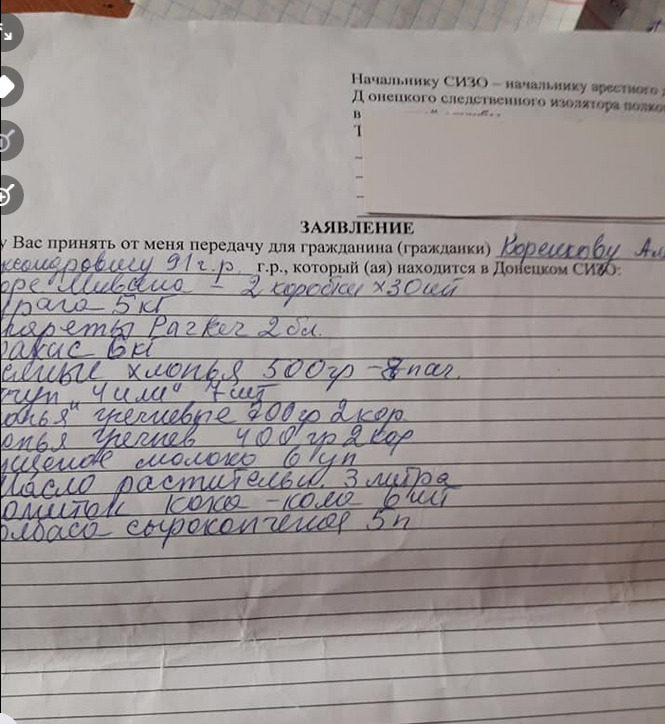 Начальнику СИЗО – начальнику арестного
Д онецкого следственного изолятора полко
в
Т
ЗАЯВЛЕНИЕ
у Вас принять от меня передачу для гражданина (гражданки) Корешкову Ал
ксандровичу 91 г.р. г.р., который (ая) находится в Донецком СИЗО:
юре Мивина – 2 коробки х 30 шт
5 кг
гареты Parker 2 бл.
6 кг
хлопья 500 гр – 8 пач.
тчуп „Чили" 7 шт
лопья гречневые 700 гр 2 кор
опья гречнев 400 гр 2 кор
ущеное молоко 6 уп
Масло растительн. 3 литра
кока-кола 6 шт
олбаса сырокопченая 5 п